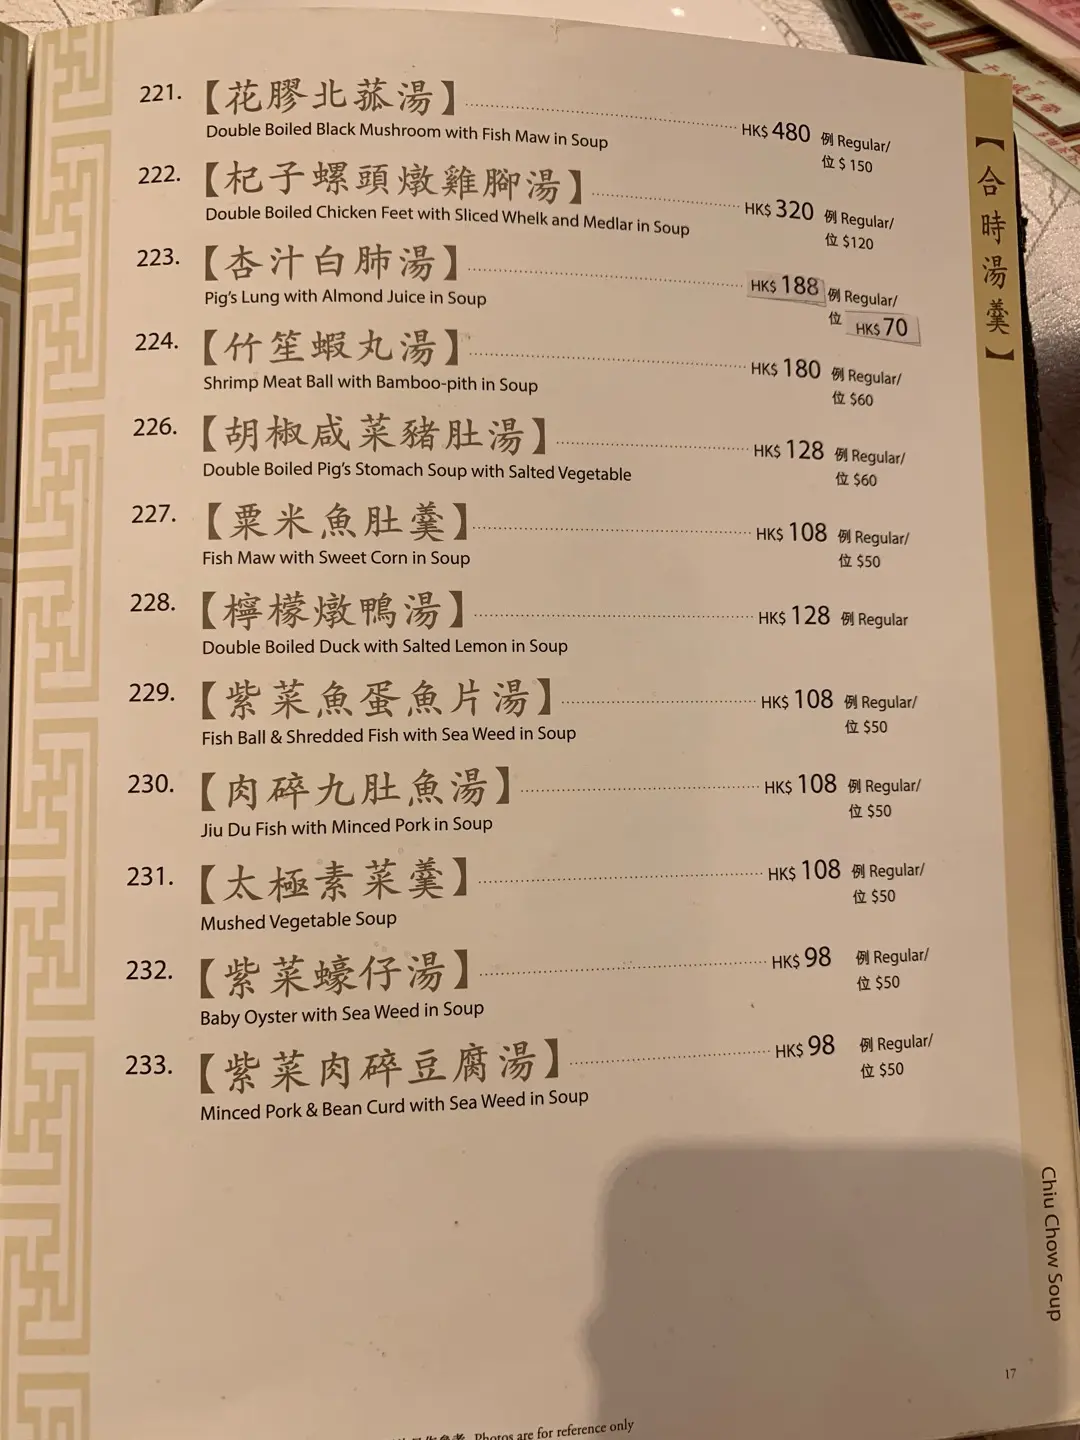 221.【花膠北菰湯】 HK$ 480 例 Regular/
Double Boiled Black Mushroom with Fish Maw in Soup 位 $ 150
222.【杞子螺頭燉雞腳湯】 HK$ 320 例 Regular/
Double Boiled Chicken Feet with Sliced Whelk and Medlar in Soup 位 $120
223.【杏汁白肺湯】 HK$ 188 例 Regular/
Pig's Lung with Almond Juice in Soup 位 HK$ 70
224.【竹笙蝦丸湯】 HK$ 180 例 Regular/
Shrimp Meat Ball with Bamboo-pith in Soup 位 $60
226.【胡椒咸菜豬肚湯】 HK$ 128 例 Regular/
Double Boiled Pig's Stomach Soup with Salted Vegetable 位 $60
227.【粟米魚肚羹】 HK$ 108 例 Regular/
Fish Maw with Sweet Corn in Soup 位 $50
228.【檸檬燉鴨湯】 HK$ 128 例 Regular
Double Boiled Duck with Salted Lemon in Soup
229.【紫菜魚蛋魚片湯】 HK$ 108 例 Regular/
Fish Ball & Shredded Fish with Sea Weed in Soup 位 $50
230.【肉碎九肚魚湯】 HK$ 108 例 Regular/
Jiu Du Fish with Minced Pork in Soup 位 $50
231.【太極素菜羹】 HK$ 108 例 Regular/
Mushed Vegetable Soup 位 $50
232.【紫菜蠔仔湯】 HK$ 98 例 Regular/
Baby Oyster with Sea Weed in Soup 位 $50
233.【紫菜肉碎豆腐湯】 HK$ 98 例 Regular/
Minced Pork & Bean Curd with Sea Weed in Soup 位 $50
【合時湯羹】
Chiu Chow Soup
17
Photos are for reference only